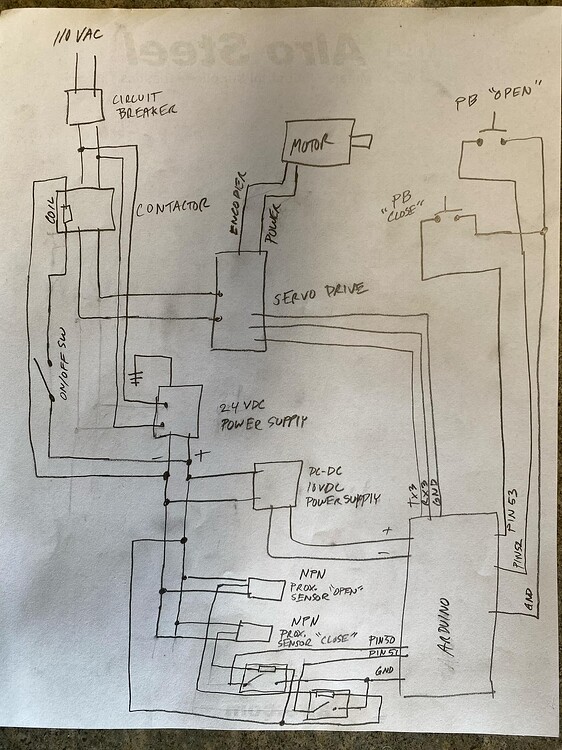 110 VAC
CIRCUIT
BREAKER
PB "OPEN"
MOTOR
COIL
CONTACTOR
ENCODER
POWER
PB
"CLOSE"
SERVO DRIVE
ON/OFF SW
24 VDC
POWER SUPPLY
- +
DC-DC
10VDC
POWER SUPPLY
TX3
RX3
GND
PIN 53
PIN52
GND
+
-
NPN
PROX.
SENSOR "OPEN"
NPN
PROX.
SENSOR "CLOSE"
PIN50
PIN51
GND
ARDUINO
Airo Steel
.com